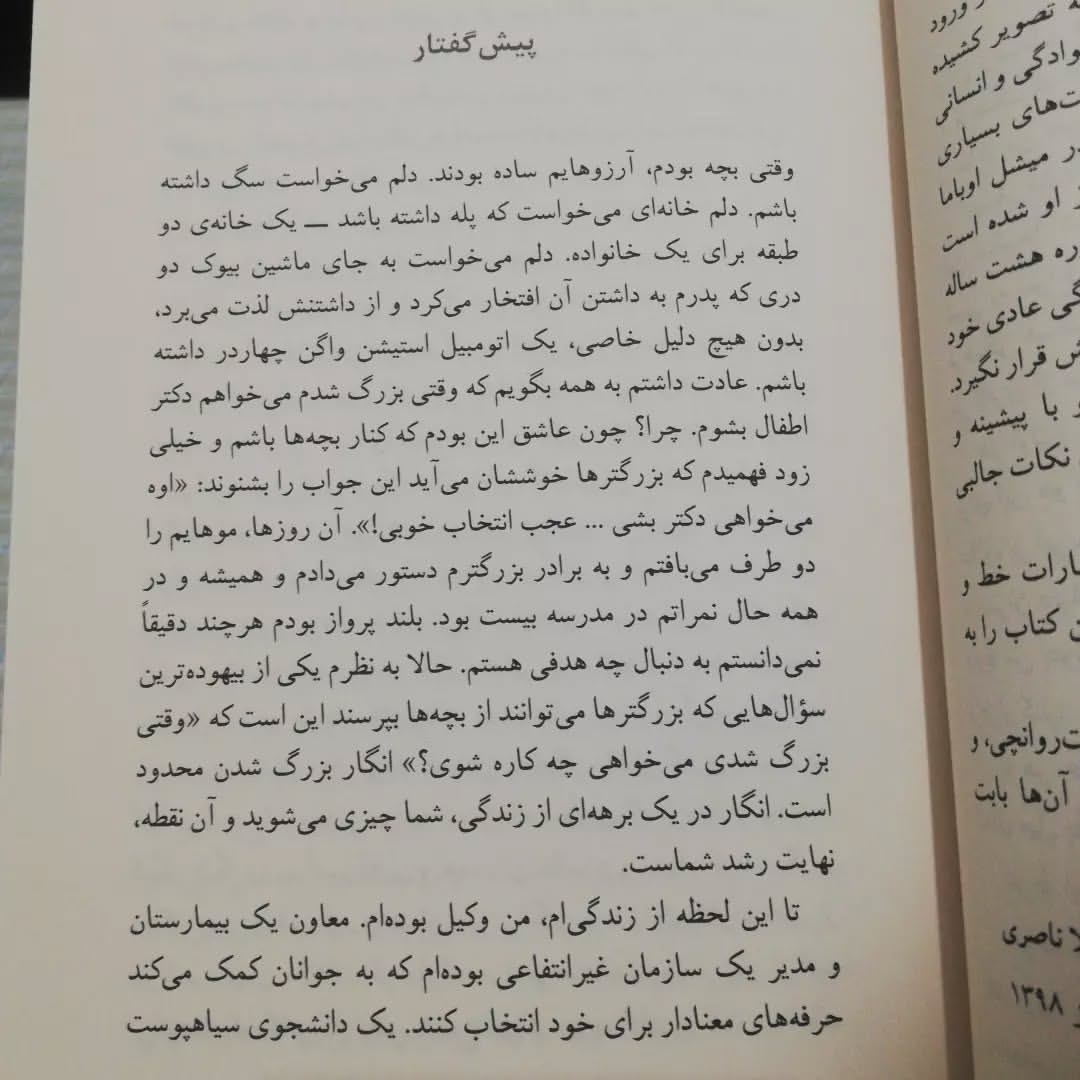 پیش‌گفتار
وقتی بچه بودم، آرزوهایم ساده بودند. دلم می‌خواست سگ داشته
باشم. دلم خانه‌ای می‌خواست که پله داشته باشد ــ یک خانه‌ی دو
طبقه برای یک خانواده. دلم می‌خواست به جای ماشین بیوک دو
دری که پدرم به داشتن آن افتخار می‌کرد و از داشتنش لذت می‌برد،
بدون هیچ دلیل خاصی، یک اتومبیل استیشن واگن چهاردر داشته
باشم. عادت داشتم به همه بگویم که وقتی بزرگ شدم می‌خواهم دکتر
اطفال بشوم. چرا؟ چون عاشق این بودم که کنار بچه‌ها باشم و خیلی
زود فهمیدم که بزرگترها خوششان می‌آید این جواب را بشنوند: «اوه
می‌خواهی دکتر بشی ... عجب انتخاب خوبی!». آن روزها، موهایم را
دو طرف می‌بافتم و به برادر بزرگترم دستور می‌دادم و همیشه و در
همه حال نمراتم در مدرسه بیست بود. بلند پرواز بودم هرچند دقیقاً
نمی‌دانستم به دنبال چه هدفی هستم. حالا به نظرم یکی از بیهوده‌ترین
سؤال‌هایی که بزرگترها می‌توانند از بچه‌ها بپرسند این است که «وقتی
بزرگ شدی می‌خواهی چه کاره شوی؟» انگار بزرگ شدن محدود
است. انگار در یک برهه‌ای از زندگی، شما چیزی می‌شوید و آن نقطه،
نهایت رشد شماست.
تا این لحظه از زندگی‌ام، من وکیل بوده‌ام. معاون یک بیمارستان
و مدیر یک سازمان غیرانتفاعی بوده‌ام که به جوانان کمک می‌کند
حرفه‌های معنادار برای خود انتخاب کنند. یک دانشجوی سیاهپوست
ورود
تصویر کشیده
و انسانی
بسیاری
میشل اوباما
او شده است
هشت ساله
عادی خود
قرار نگیرد.
با پیشینه و
نکات جالبی
خط و
کتاب را به
و
آن‌ها بابت
ناصری
۱۳۹۸